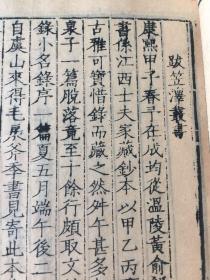 跋笠澤叢書
康熙甲子春予在成均從溫陵黃俞
書係江西士夫家藏鈔本以甲乙丙
古雅可寶惜錄而藏之然舛甚多
泉子一篇脫落竟至十餘行頗取文
錄小名錄序一篇夏五月端午後二
自虞山來得毛扆斧季書見寄此本